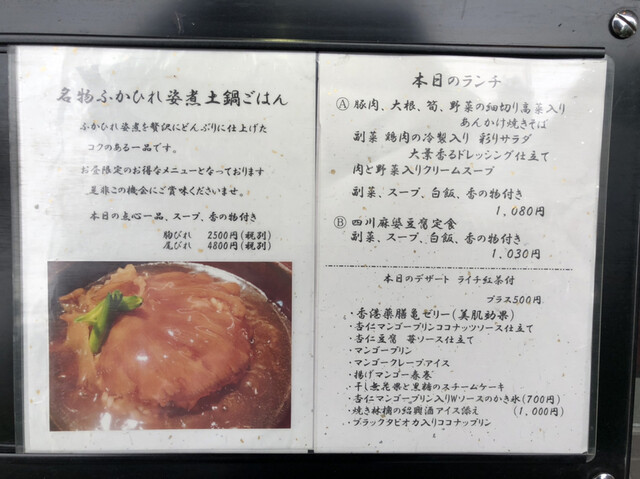 名物ふかひれ姿煮土鍋ごはん
ふかひれ姿煮を贅沢にどんぶりに仕上げた
コクのある一品です。
お昼限定のお得なメニューとなっております
是非この機会にご賞味くださいませ。
本日の点心一品、スープ、香の物付き
胸びれ 2500円(税別)
尾びれ 4800円(税別)
本日のランチ
Ⓐ 豚肉、大根、筍、野菜の細切り高菜入り
あんかけ焼きそば
副菜 鶏肉の冷製入り 彩りサラダ
大葉香るドレッシング仕立て
肉と野菜入りクリームスープ
副菜、スープ、白飯、香の物付き
1,080円
Ⓑ 四川麻婆豆腐定食
副菜、スープ、白飯、香の物付き
1,030円
本日のデザート ライチ紅茶付
プラス500円
・香港薬膳亀ゼリー(美肌効果)
・杏仁マンゴープリンココナッツソース仕立て
・杏仁豆腐 苺ソース仕立て
・マンゴープリン
・マンゴークレープアイス
・揚げマンゴー春巻
・干し無花果と黒糖のスチームケーキ
・杏仁マンゴープリン入りWソースのかき氷(700円)
・焼き林檎の紹興酒アイス添え (1,000円)
・ブラックタピオカ入りココナップリン